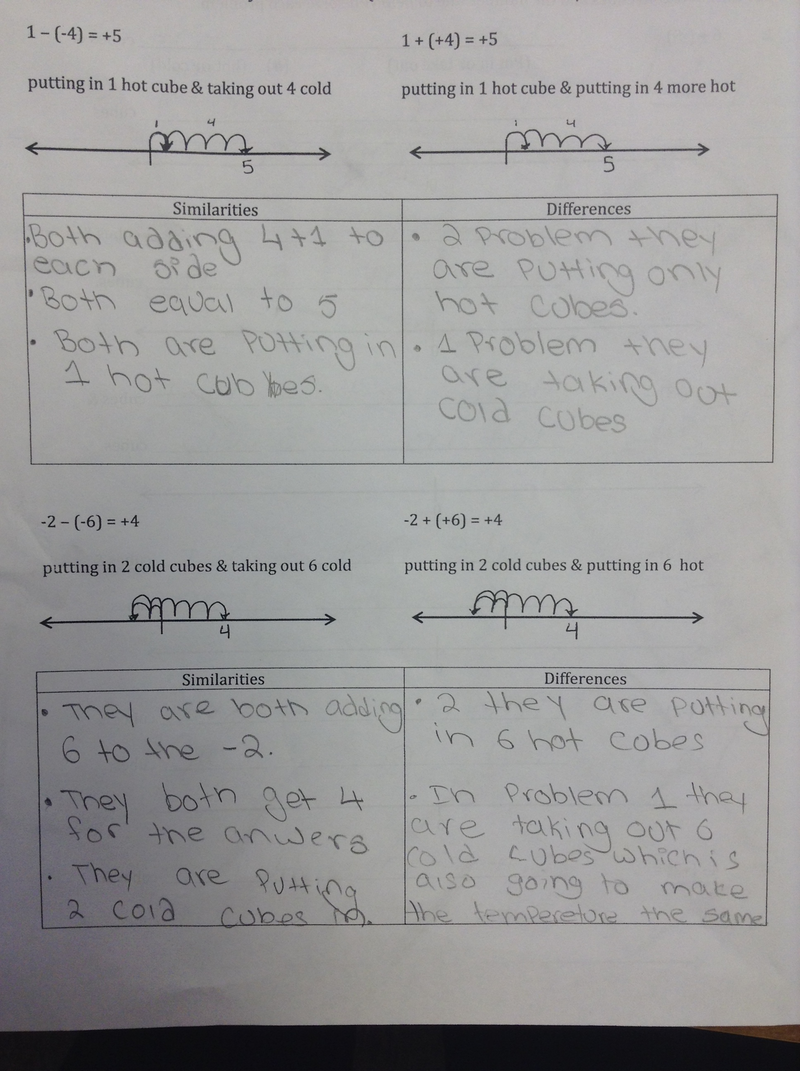 1 – (-4) = +5
1 + (+4) = +5
putting in 1 hot cube & taking out 4 cold
putting in 1 hot cube & putting in 4 more hot
1 4
5
1 4
5
Similarities
Differences
• Both adding 4+1 to
each side
• Both equal to 5
• Both are putting in
1 hot cubbes.
• 2 Problem they
are putting only
hot cubes.
• 1 Problem they
are taking out
cold cubes
-2 – (-6) = +4
-2 + (+6) = +4
putting in 2 cold cubes & taking out 6 cold
putting in 2 cold cubes & putting in 6 hot
4
4
Similarities
Differences
• They are both adding
6 to the -2.
• They both get 4
for the anwers
• They are putting
2 cold cubes in.
• 2 they are putting
in 6 hot cubes
• In Problem 1 they
are taking out 6
cold cubes which is
also going to make
the tempereture the same